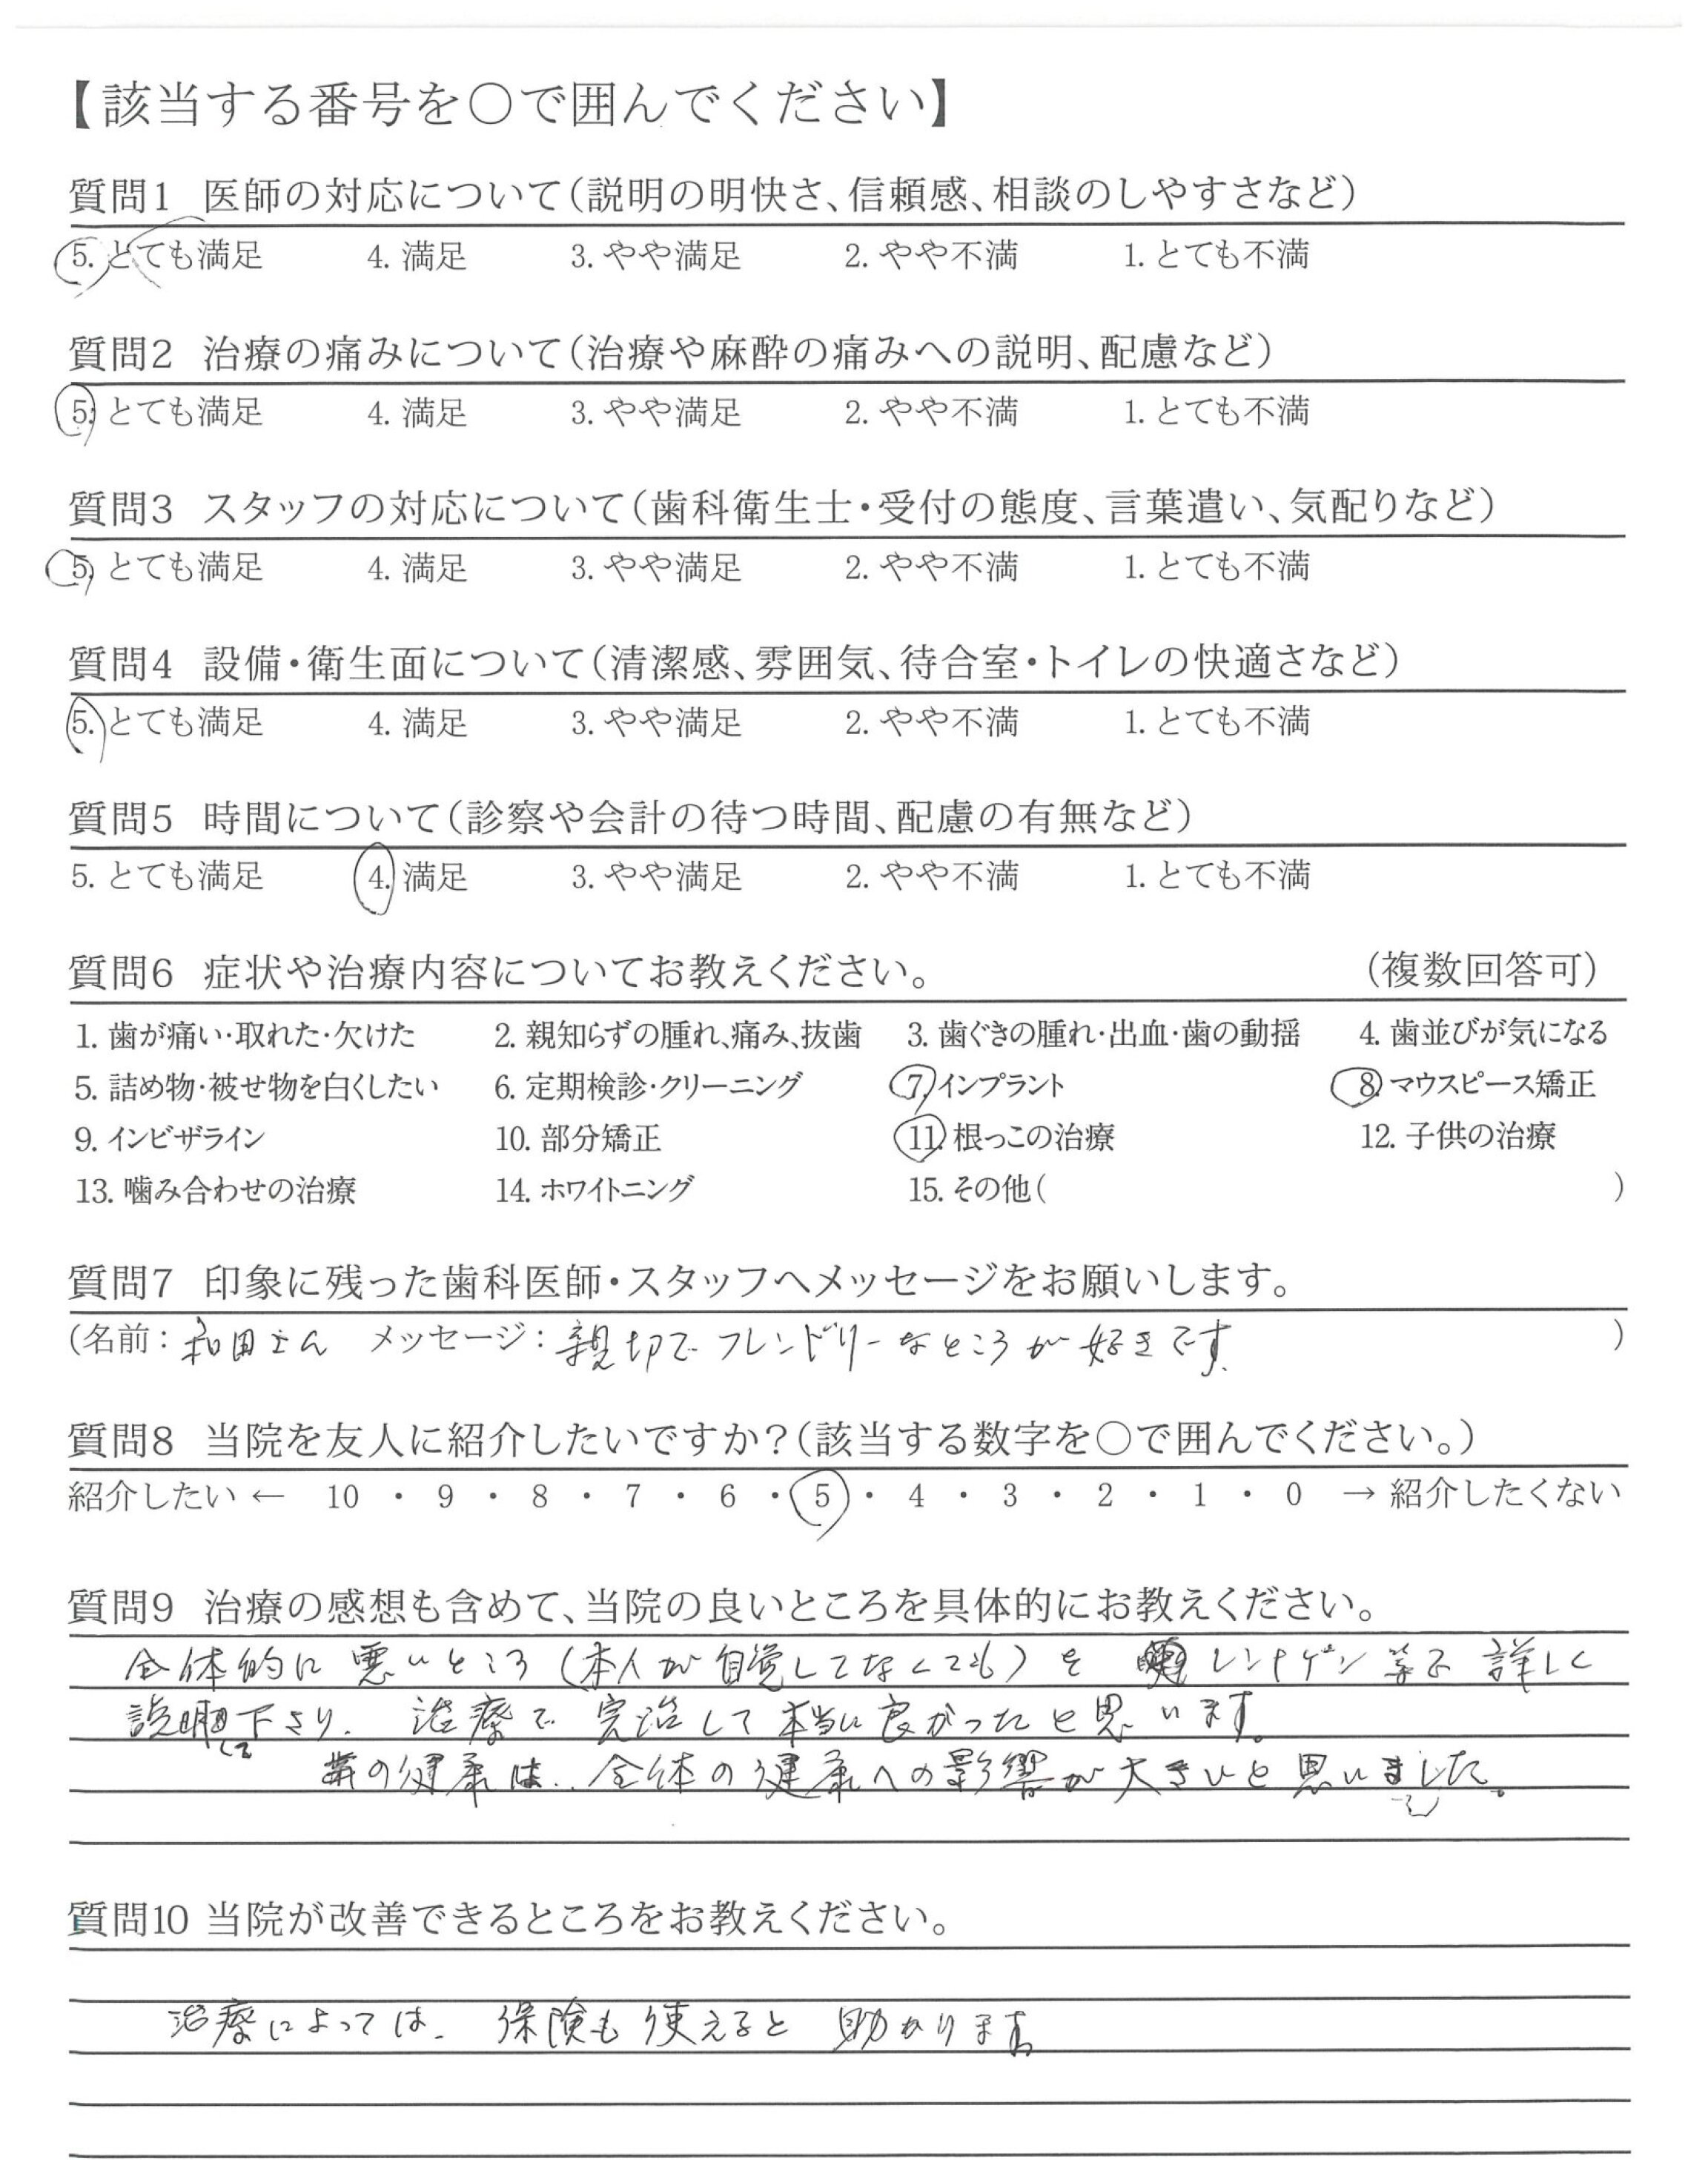 【該当する番号を○で囲んでください】
質問1 医師の対応について（説明の明快さ、信頼感、相談のしやすさなど）
5. とても満足 4. 満足 3. やや満足 2. やや不満 1. とても不満
質問2 治療の痛みについて（治療や麻酔の痛みへの説明、配慮など）
5. とても満足 4. 満足 3. やや満足 2. やや不満 1. とても不満
質問3 スタッフの対応について（歯科衛生士・受付の態度、言葉遣い、気配りなど）
5. とても満足 4. 満足 3. やや満足 2. やや不満 1. とても不満
質問4 設備・衛生面について（清潔感、雰囲気、待合室・トイレの快適さなど）
5. とても満足 4. 満足 3. やや満足 2. やや不満 1. とても不満
質問5 時間について（診察や会計の待つ時間、配慮の有無など）
5. とても満足 4. 満足 3. やや満足 2. やや不満 1. とても不満
質問6 症状や治療内容についてお教えください。 （複数回答可）
1. 歯が痛い・取れた・欠けた 2. 親知らずの腫れ、痛み、抜歯 3. 歯ぐきの腫れ・出血・歯の動揺 4. 歯並びが気になる
5. 詰め物・被せ物を白くしたい 6. 定期検診・クリーニング 7. インプラント 8. マウスピース矯正
9. インビザライン 10. 部分矯正 11. 根っこの治療 12. 子供の治療
13. 噛み合わせの治療 14. ホワイトニング 15. その他（ ）
質問7 印象に残った歯科医師・スタッフへメッセージをお願いします。
（名前：和田さん メッセージ：親切でフレンドリーなところが好きです。）
質問8 当院を友人に紹介したいですか？（該当する数字を○で囲んでください。）
紹介したい ← 10 ・ 9 ・ 8 ・ 7 ・ 6 ・ 5 ・ 4 ・ 3 ・ 2 ・ 1 ・ 0 → 紹介したくない
質問9 治療の感想も含めて、当院の良いところを具体的にお教えください。
全体的に悪いところ（本人が自覚してなくても）を レントゲン等で 詳しく
説明して下さり、治療で完治して本当に良かったと思います。
歯の健康は、全体の健康への影響が大きいと思いました。
質問10 当院が改善できるところをお教えください。
治療によっては、保険も使えると助かります。